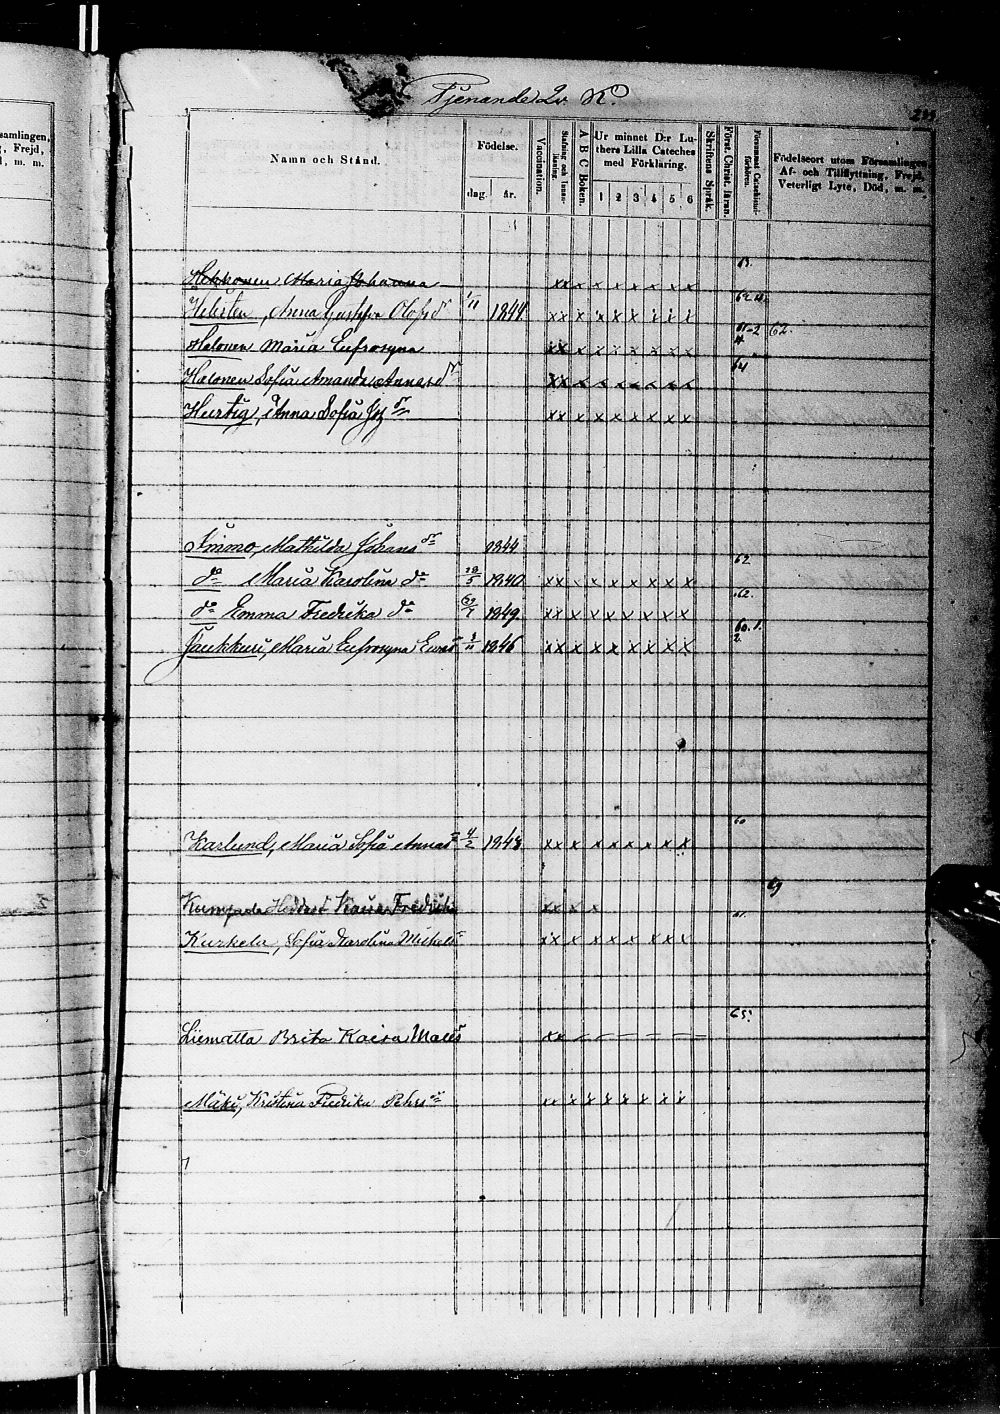 samlingen,
, Frejd,
m. m.
Tjenande Qv. K.
Namn och Stånd.
Födelse.
dag.
år.
Vaccination.
Stafning och Innanläsning.
A B C Boken.
Ur minnet D:r Luthers Lilla Cateches med Förklaring.
1 2 3 4 5 6
Skriftens Språk.
Först. Christ. läran.
Försummat Catechismiförhören.
Födelseort utom Församlingen,
Af- och Tillflyttning, Frejd,
Veterligt Lyte, Död, m. m.
Hekkonen Maria Johanna xx x x x x x x x
Helistén, Anna Gustafva Olofsdr 1844 xx x x x x x x x 62
Halonen Maria Eufrosyna xx x x x x x x x 62.
Halonen Sofia Amanda Andersdr xx x x x x x x x 64
Hurtig, Anna Sofia Joz dr xx x x x x x x x
Immo, Mathilda Johans dr 1844
do Maria Karolina do 28/5 1840 xx x x x x x x x 62
do Emma Fredrika do 1849. xx x x x x x x x 62.
Jaukkuri, Maria Eufrosyna 3/11 1846 xx x x x x x x x 60. 1. 2.
Karlund, Maria Sofia 4/2 1843 xx x x x x x x x 60
Kaisa Fredrika xx x x
Kurkela, Sofia Karolina Michels xx x x x x x x x 61.
Liematta Brita Kaisa Matts xx 65.
Mäki, Kristina Fredrika Pehrs dr xx x x x x x x x